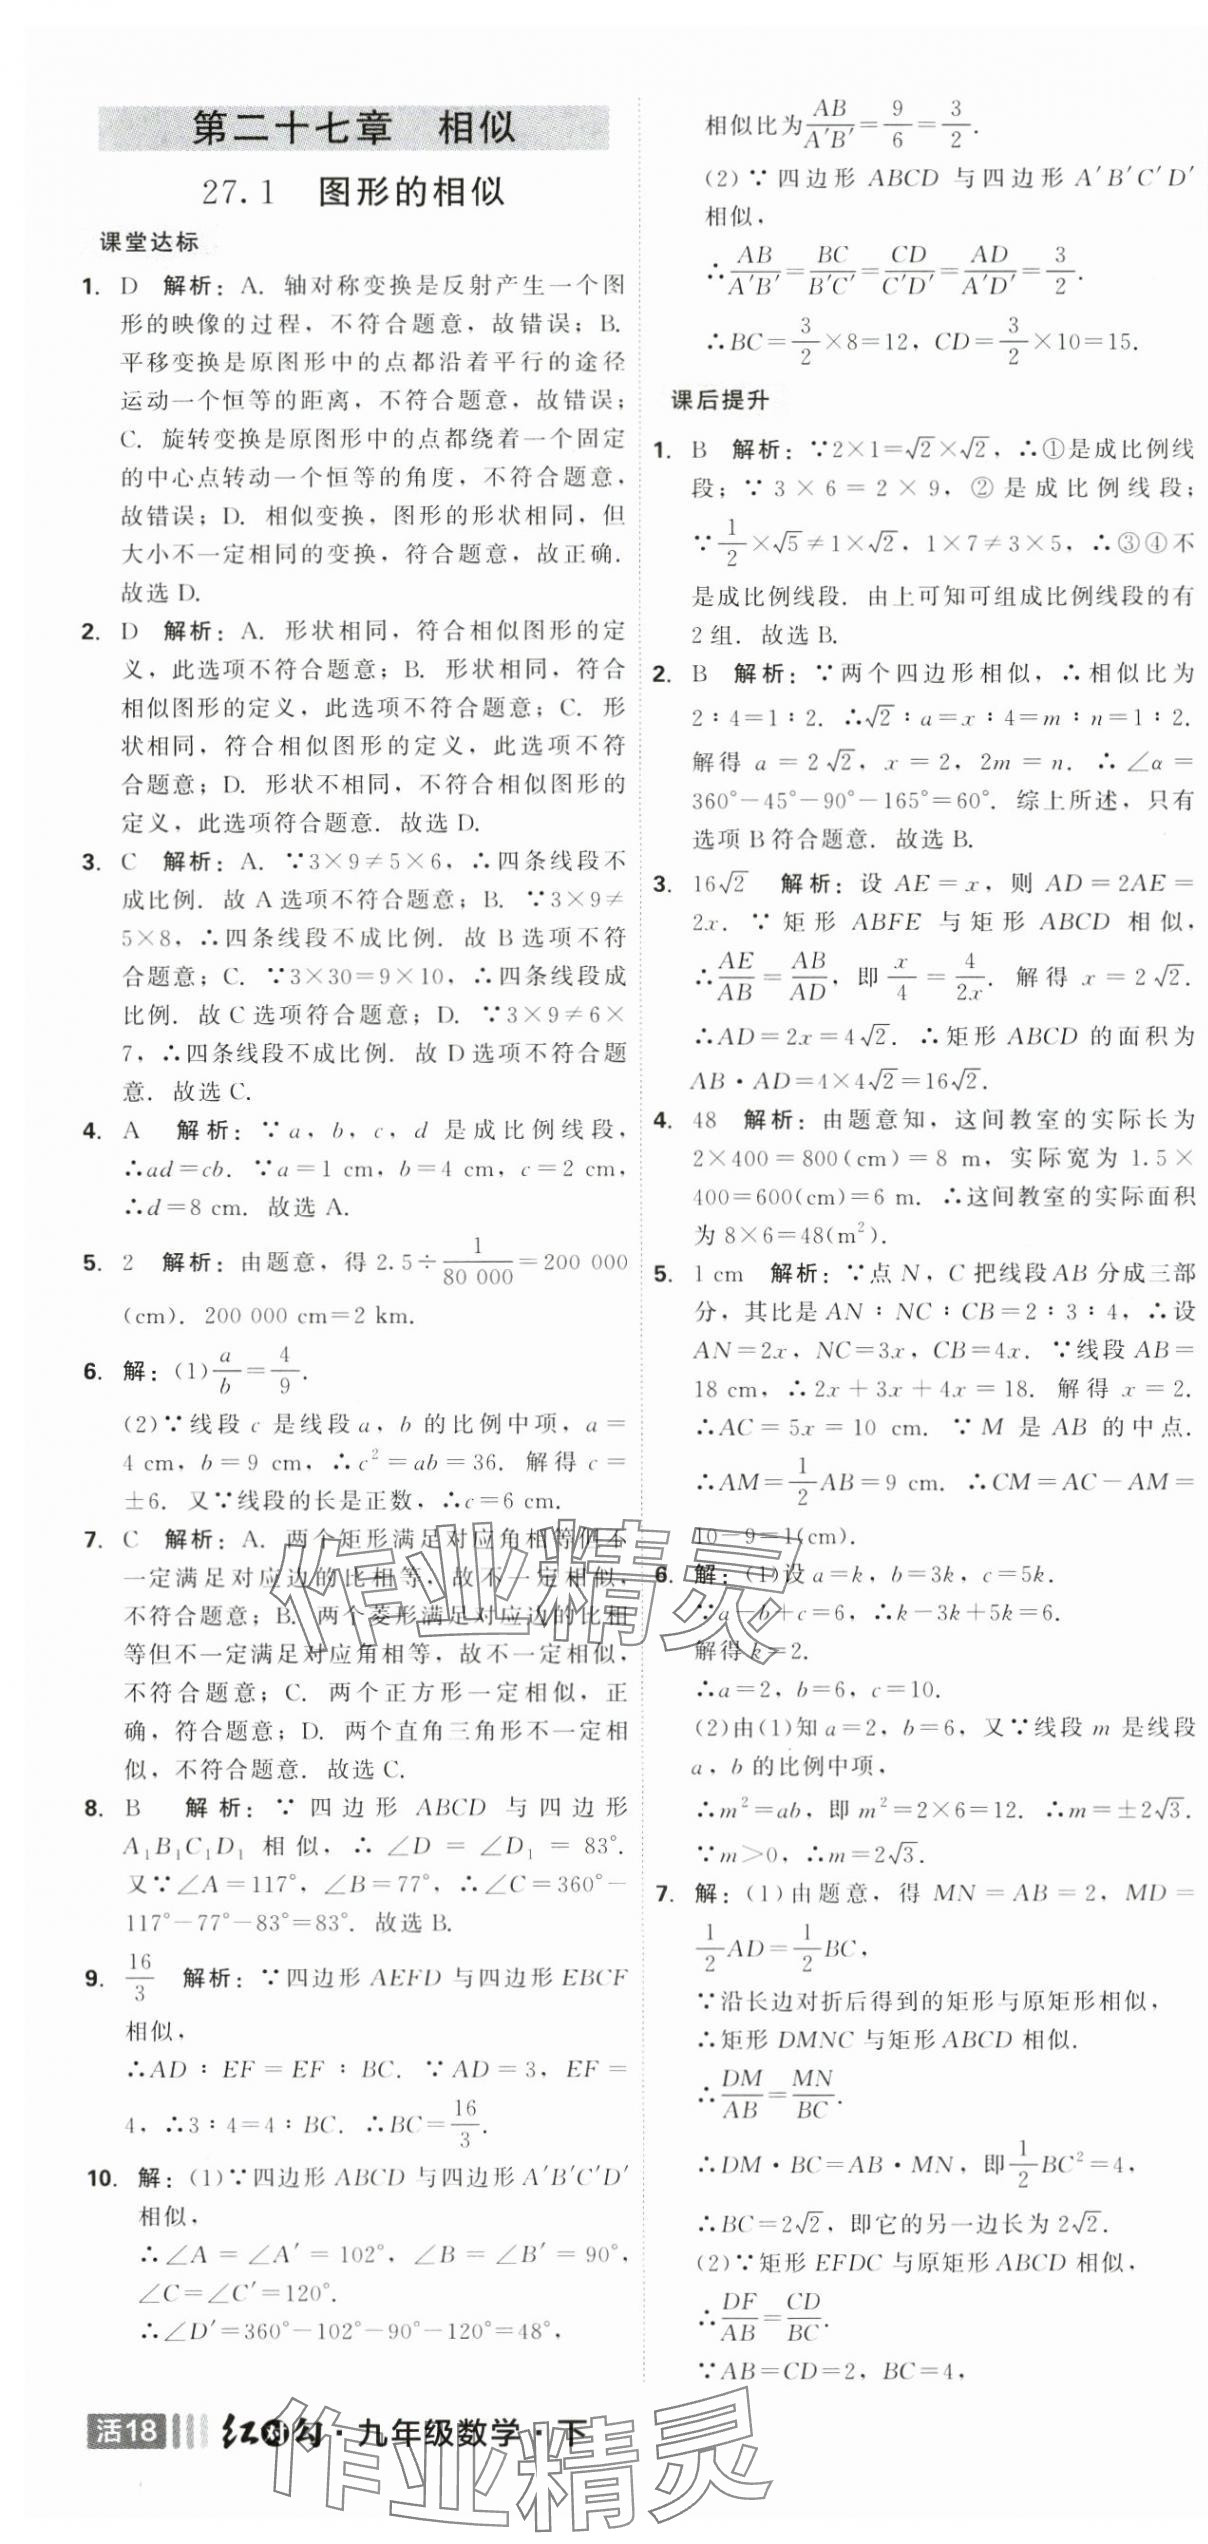 第二十七章 相似
27.1 图形的相似
课堂达标
1. D 解析：A. 轴对称变换是反射产生一个图
形的映像的过程，不符合题意，故错误；B.
平移变换是原图形中的点都沿着平行的途径
运动一个恒等的距离，不符合题意，故错误；
C. 旋转变换是原图形中的点都绕着一个固定
的中心点转动一个恒等的角度，不符合题意，
故错误；D. 相似变换，图形的形状相同，但
大小不一定相同的变换，符合题意，故正确.
故选 D.
2. D 解析：A. 形状相同，符合相似图形的定
义，此选项不符合题意；B. 形状相同，符合
相似图形的定义，此选项不符合题意；C. 形
状相同，符合相似图形的定义，此选项不符
合题意；D. 形状不相同，不符合相似图形的
定义，此选项符合题意. 故选 D.
3. C 解析：A. ∵3×9≠5×6，∴四条线段不
成比例. 故 A 选项不符合题意；B. ∵3×9≠
5×8，∴四条线段不成比例. 故 B 选项不符
合题意；C. ∵3×30=9×10，∴四条线段成
比例. 故 C 选项符合题意；D. ∵3×9≠6×
7，∴四条线段不成比例. 故 D 选项不符合题
意. 故选 C.
4. A 解析：∵a，b，c，d 是成比例线段，
∴ad=cb. ∵a=1 cm，b=4 cm，c=2 cm，
∴d=8 cm. 故选 A.
5. 2 解析：由题意，得 2.5÷1/80 000=200 000
(cm). 200 000 cm=2 km.
6. 解：(1)a/b=4/9.
(2)∵线段 c 是线段 a，b 的比例中项，a=
4 cm，b=9 cm，∴c²=ab=36. 解得 c=
±6. 又∵线段的长是正数，∴c=6 cm.
7. C 解析：A. 两个矩形满足对应角相等但不
一定满足对应边的比相等，故不一定相似，
不符合题意；B. 两个菱形满足对应边的比相
等但不一定满足对应角相等，故不一定相似，
不符合题意；C. 两个正方形一定相似，正
确，符合题意；D. 两个直角三角形不一定相
似，不符合题意. 故选 C.
8. B 解析：∵四边形 ABCD 与四边形
A₁B₁C₁D₁ 相似，∴∠D=∠D₁=83°.
又∵∠A=117°，∠B=77°，∴∠C=360°−
117°−77°−83°=83°. 故选 B.
9. 16/3 解析：∵四边形 AEFD 与四边形 EBCF
相似，
∴AD∶EF=EF∶BC. ∵AD=3，EF=
4，∴3∶4=4∶BC. ∴BC=16/3.
10. 解：(1)∵四边形 ABCD 与四边形 A′B′C′D′
相似，
∴∠A=∠A′=102°，∠B=∠B′=90°，
∠C=∠C′=120°.
∴∠D′=360°−102°−90°−120°=48°，
相似比为AB/A′B′=9/6=3/2.
(2)∵四边形 ABCD 与四边形 A′B′C′D′
相似，
∴AB/A′B′=BC/B′C′=CD/C′D′=AD/A′D′=3/2.
∴BC=3/2×8=12，CD=3/2×10=15.
课后提升
1. B 解析：∵2×1=√2×√2，∴①是成比例线
段；∵3×6=2×9，②是成比例线段；
∵1/2×√5≠1×√2，1×7≠3×5，∴③④不
是成比例线段. 由上可知可组成比例线段的有
2组. 故选 B.
2. B 解析：∵两个四边形相似，∴相似比为
2∶4=1∶2. ∴√2∶a=x∶4=m∶n=1∶2.
解得 a=2√2，x=2，2m=n. ∴∠α=
360°−45°−90°−165°=60°. 综上所述，只有
选项 B 符合题意. 故选 B.
3. 16√2 解析：设 AE=x，则 AD=2AE=
2x. ∵矩形 ABFE 与矩形 ABCD 相似，
∴AE/AB=AB/AD，即x/4=4/2x. 解得 x=2√2.
∴AD=2x=4√2. ∴矩形 ABCD 的面积为
AB·AD=4×4√2=16√2.
4. 48 解析：由题意知，这间教室的实际长为
2×400=800(cm)=8 m，实际宽为 1.5×
400=600(cm)=6 m. ∴这间教室的实际面积
为 8×6=48(m²).
5. 1 cm 解析：∵点 N，C 把线段AB 分成三部
分，其比是 AN∶NC∶CB=2∶3∶4，∴设
AN=2x，NC=3x，CB=4x. ∵线段 AB=
18 cm，∴2x+3x+4x=18. 解得 x=2.
∴AC=5x=10 cm. ∵M 是 AB 的中点.
∴AM=1/2AB=9 cm. ∴CM=AC−AM=
10−9=1(cm).
6. 解：(1)设 a=k，b=3k，c=5k.
∵a−b+c=6，∴k−3k+5k=6.
解得 k=2.
∴a=2，b=6，c=10.
(2)由(1)知 a=2，b=6，又∵线段 m 是线段
a，b 的比例中项，
∴m²=ab，即 m²=2×6=12. ∴m=±2√3.
∵m>0，∴m=2√3.
7. 解：(1)由题意，得 MN=AB=2，MD=
1/2AD=1/2BC，
∵沿长边对折后得到的矩形与原矩形相似，
∴矩形 DMNC 与矩形 ABCD 相似.
∴DM/AB=MN/BC.
∴DM·BC=AB·MN，即1/2BC²=4，
∴BC=2√2，即它的另一边长为 2√2.
(2)∵矩形 EFDC 与原矩形 ABCD 相似，
∴DF/AB=CD/BC.
∵AB=CD=2，BC=4，
活18 红对勾·九年级数学·下
作业精灵
作业精灵